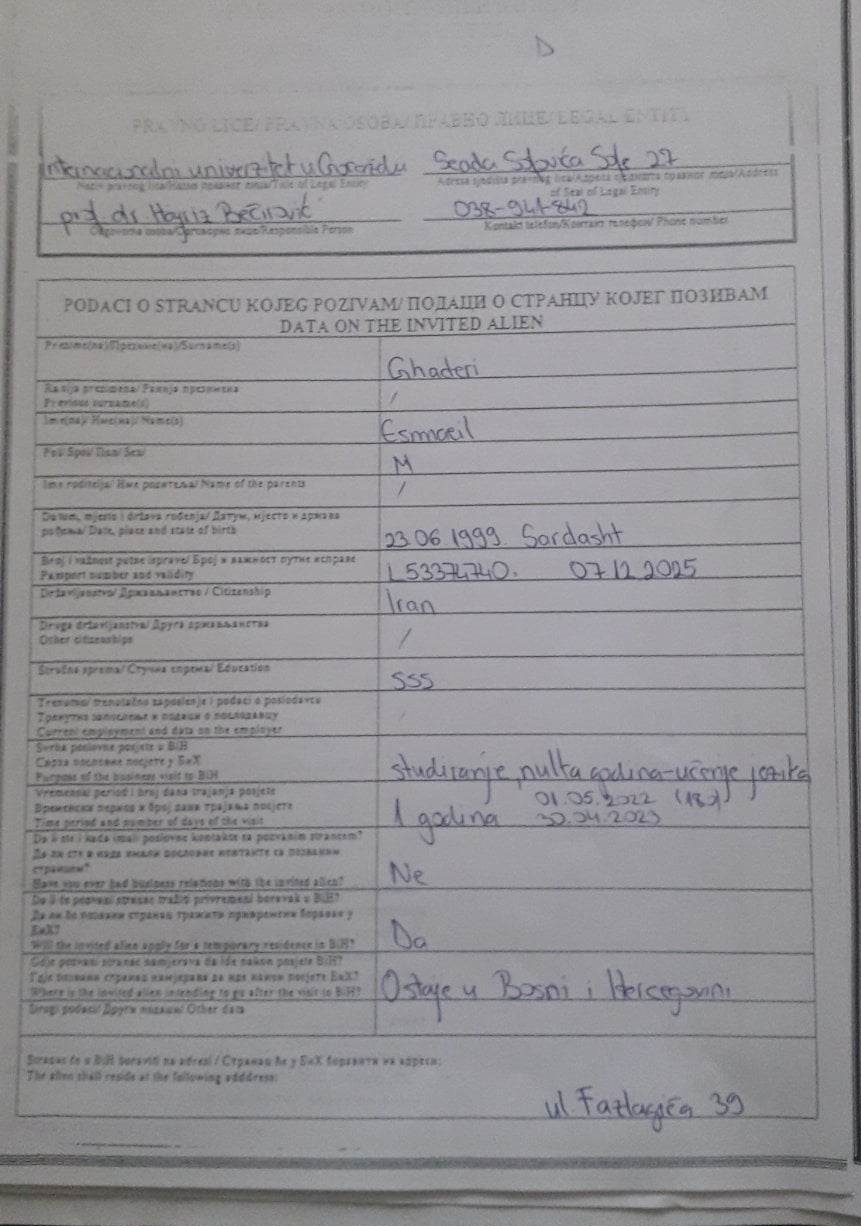 D
PRAVNO LICE/ PRAVNA OSOBA/ ПРАВНО ЛИЦЕ/ LEGAL ENTITY
Internacionalni univerzitet u Goraždu
Seada Softića Sofe 27
Naziv pravnog lica/Назив правног лица/Title of Legal Entity
Adresa sjedišta pravnog lica/Адреса сједишта правног лица/Address of Seat of Legal Entity
prof. dr. Bećirović
038-941-842
Odgovorna osoba/Одговорно лице/Responsible Person
Kontakt telefon/Контакт телефон/ Phone number
PODACI O STRANCU KOJEG POZIVAM/ ПОДАЦИ О СТРАНЦУ КОЈЕГ ПОЗИВАМ
DATA ON THE INVITED ALIEN
Prezime(na)/Презиме(на)/Surname(s)
Ghaderi
Ranija prezimena/ Ранија презимена
Previous surname(s)
/
Ime(na)/ Име(на)/ Name(s)
Esmaeil
Pol/ Spol/ Пол/ Sex/
M
Ime roditelja/ Име родитеља/ Name of the parents
/
Datum, mjesto i država rođenja/ Датум, мјесто и држава
рођења/ Date, place and state of birth
23.06.1999. Sardasht
Broj i važnost putne isprave/ Број и важност путне исправе
Passport number and validity
L53374740. 07.12.2025
Državljanstvo/ Држављанство / Citizenship
Iran
Druga državljanstva/ Друга држављанства
Other citizenships
/
Stručna sprema/ Стручна спрема/ Education
SSS
Trenutno/ trenutačno zaposlenje i podaci o poslodavcu
Тренутно запослење и подаци о послодавцу
Current employment and data on the employer
/
Svrha poslovne posjete u BiH
Сврха пословне посјете у БиХ
Purpose of the business visit to BiH
studiranje, nulta godina-učenje jezika
Vremenski period i broj dana trajanja posjete
Временски период и број дана трајања посјете
Time period and number of days of the visit
01.05.2022
1 godina 30.04.2023
Da li ste i kada imali poslovne kontakte sa pozvanim strancem?
Да ли сте и када имали пословне контакте са позваним
странцем?
Have you ever had business relations with the invited alien?
Ne
Da li će pozvani stranac tražiti privremeni boravak u BiH?
Да ли ће позвани странац тражити привремени боравак у
БиХ?
Will the invited alien apply for a temporary residence in BiH?
Da
Gdje pozvani stranac namjerava da ide nakon posjete BiH?
Гдје позвани странац намјерава да иде након посјете БиХ?
Where is the invited alien intending to go after the visit to BiH?
Ostaje u Bosni i Hercegovini
Drugi podaci/ Други подаци/ Other data
Stranac će u BiH boraviti na adresi / Странац ће у БиХ боравити на адреси:
The alien shall reside at the following adddress:
ul. Fazlagića 39